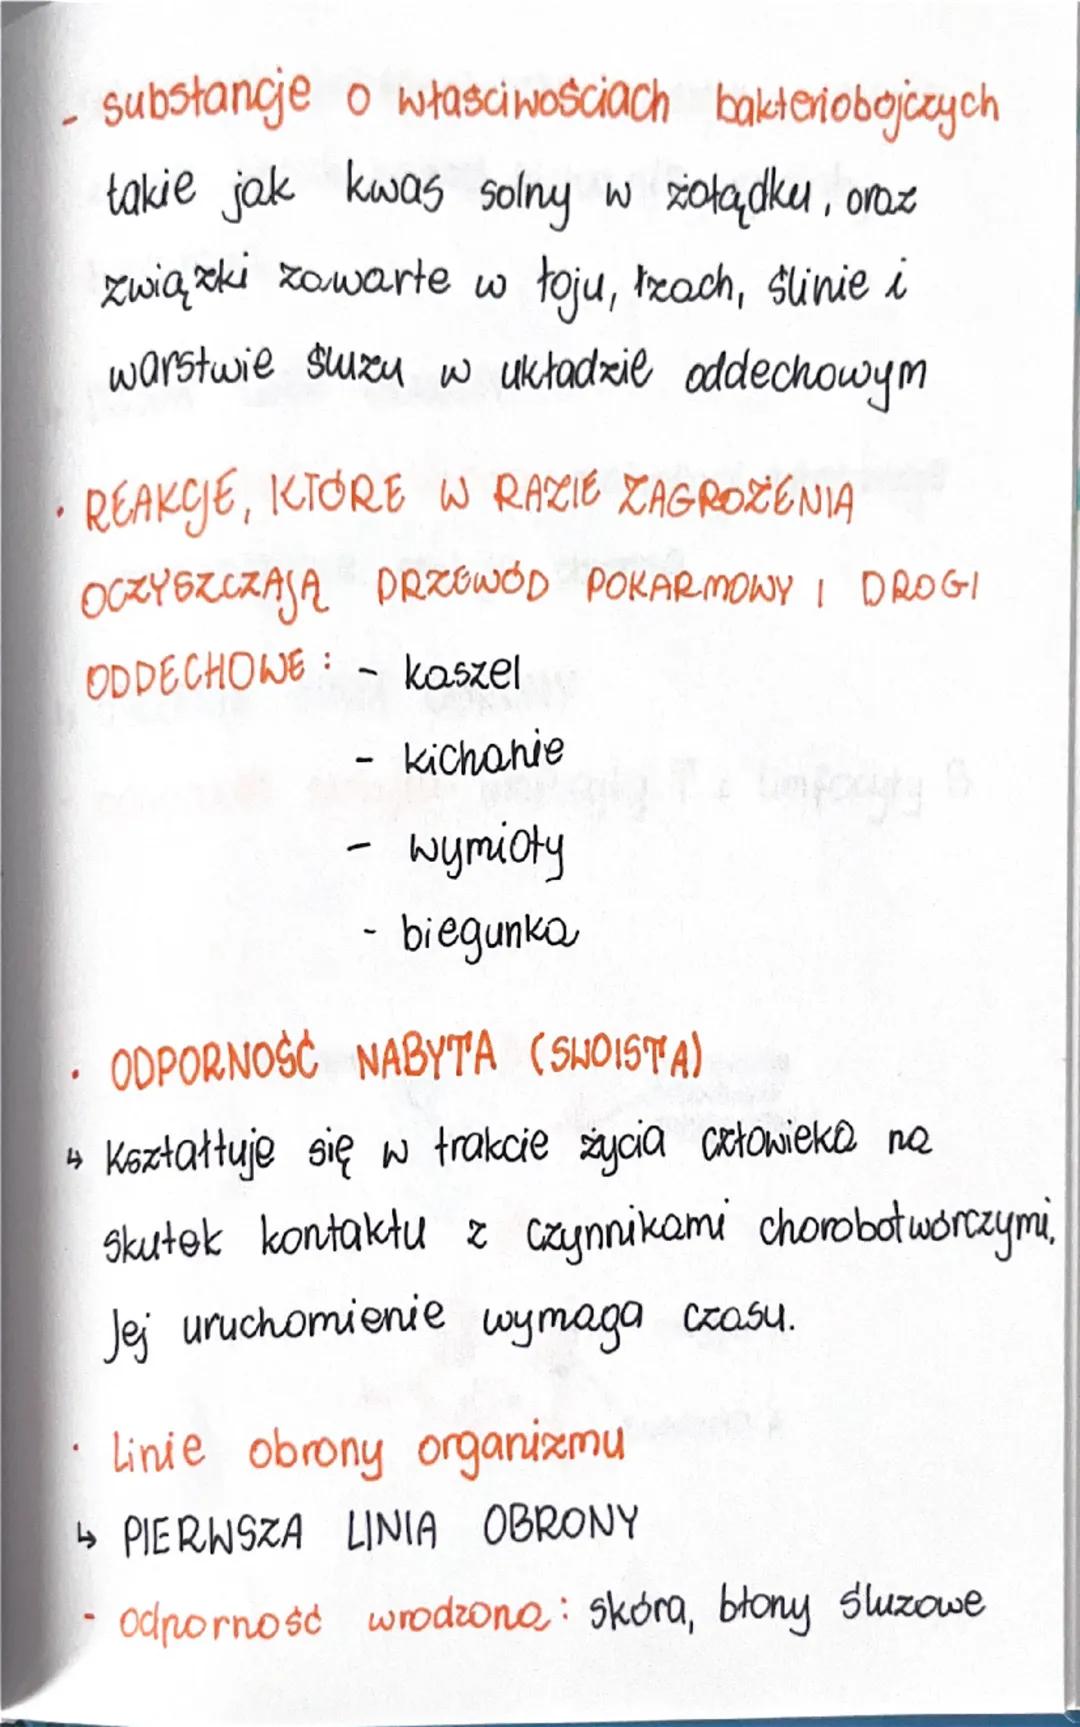 - substancje o właściwościach bakteriobójczych
takie jak kwas solny w żołądku, oraz
związki zawarte w łoju, łzach, ślinie i
warstwie śluzu w układzie oddechowym
· REAKCJE, KTÓRE W RAZIE ZAGROŻENIA
OCZYSZCZAJĄ PRZEWÓD POKARMOWY I DROGI
ODDECHOWE: - kaszel
- kichanie
- wymioty
- biegunka
· ODPORNOŚĆ NABYTA (SWOISTA)
↳ Kształtuje się w trakcie życia człowieka na
skutek kontaktu z czynnikami chorobotwórczymi.
Jej uruchomienie wymaga czasu.
· Linie obrony organizmu
↳ PIERWSZA LINIA OBRONY
- odporność wrodzona: skóra, błony śluzowe